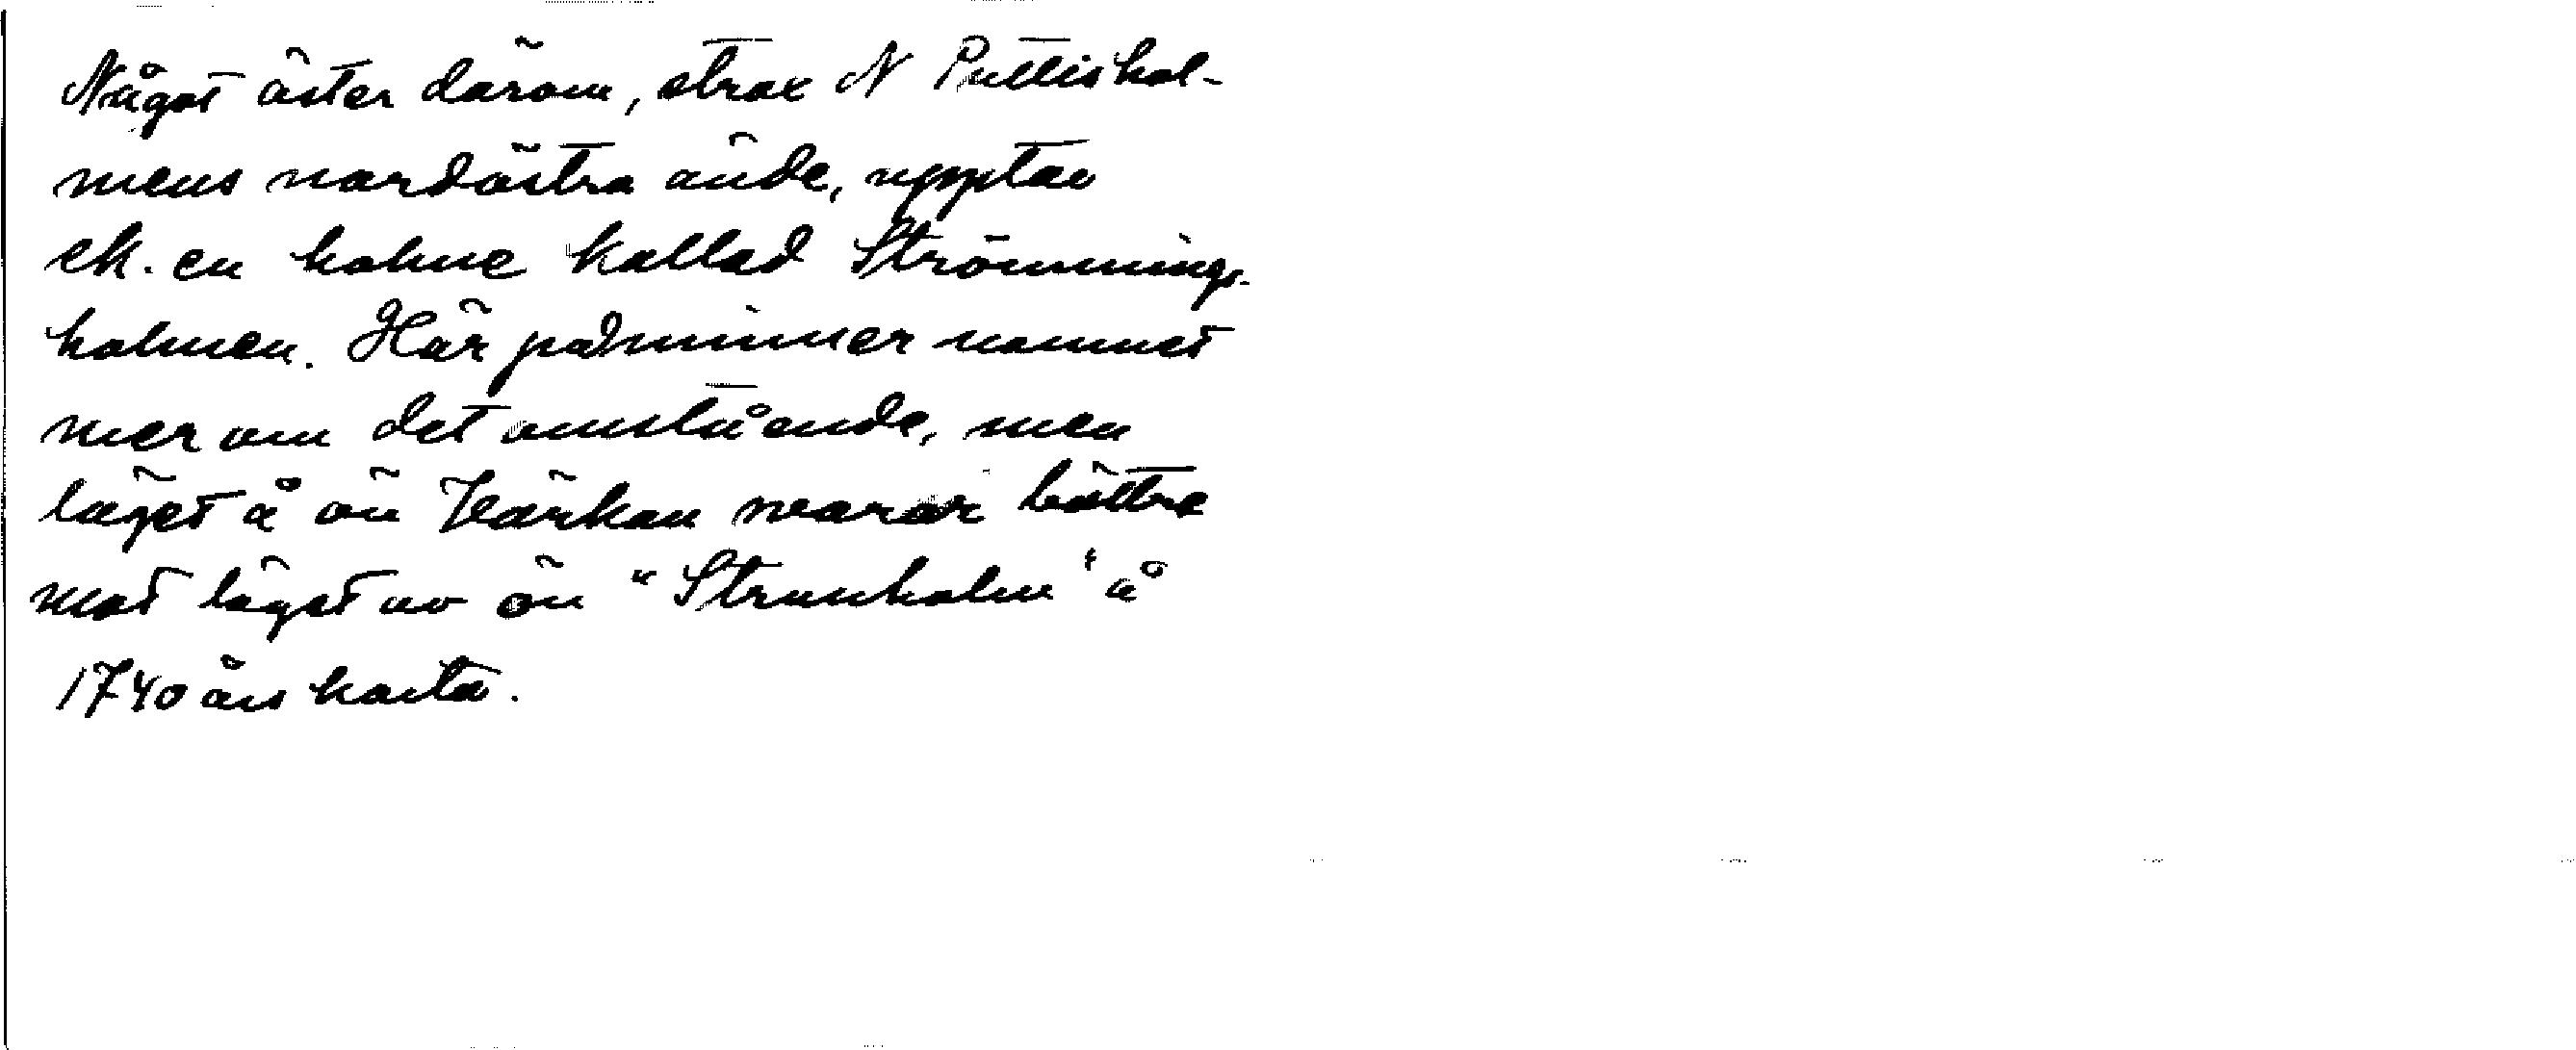 Något öster därom, strax N Pullishol-
mens nordöstra ände, upptar
ek. en holme kallad Strömmings-
holmen. Här påminner namnet
mer om det omstående, men
läget å ön Värkan svarar bättre
mot läget av ön "Strunholm" å
1740 års karta.